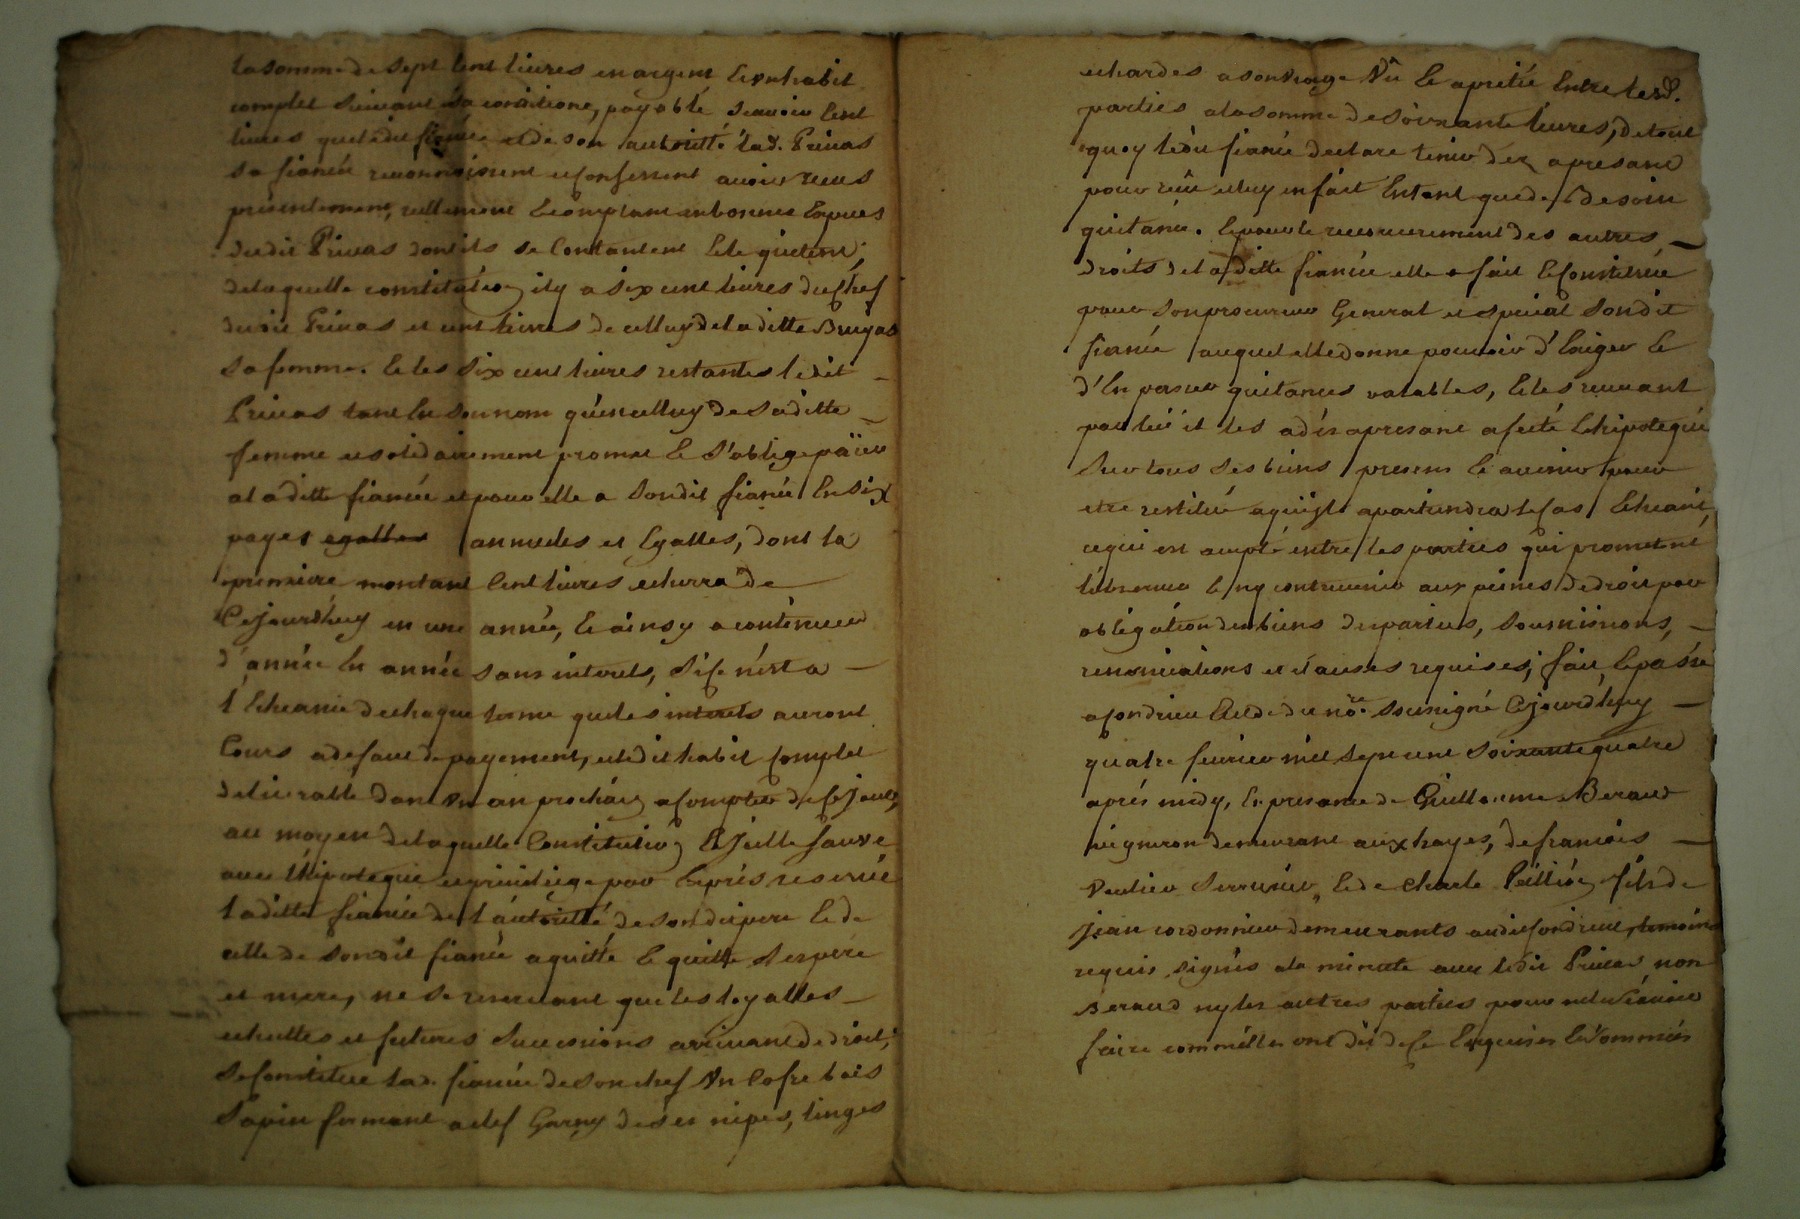 la somme de sept Cent livres en argent Et un habit
complet suivant sa condition, payable scavoir Cent
livres que ledit fiancé et de son authorité lad. Privas
sa fiancée reconnoissent et confessent avoir reçus
présentement, réellement Et comptant en bonnes Espèces
dudit Privas dont ils se Contantent Et le quittent,
de laquelle constitution il y a six cent livres du Chef
dudit Privas et cent livres de celluy de laditte Bruyas
sa femme. Et les six cent livres restantes ledit
Privas tant En son nom qu'en celluy de saditte
femme et solidairement promet Et s'oblige païer
a laditte fiancée et pour elle a sondit fiancé En six
payes egalles annuelles et Egalles, dont la
premiere montant Cent livres echerra de
Cejourdhuy en une année, Et ainsy a continuer
d'année En année sans interets, si ce n'est a
l'Echeance de chaque terme que les interets auront
Cours a defaut de payement, et ledit habit Complet
delivrable dans un an prochain a Compter de ce Jour,
au moyen de laquelle Constitution Et Icelle sauve
avec l'hipoteque et privilege pour Exprès reservé
laditte fiancée de l'autorité de sondit pere Et de
celle de sondit fiancé a quitté Et quitte sesd pere
et mere, ne se reservant que les loyalles
echuttes et futures successions arrivant de droit,
se constitue lad. fiancée de son chef un Cofre bois
sapin fermant a clef Garny de ses nipes, linges
et hardes a son usage vû Et apretié Entre lesd.
parties a la somme de soixante livres, de tout
quoy ledit fiancé declare tenir dez apresant
pour reçu et luy en fait Entant que de Besoin
quitance. Et pour le recouvrement des autres
droits de laditte fiancée elle a fait Et Constitué
pour son procureur General et special sondit
fiancé auquel elle donne pouvoir d'Exiger Et
d'En passer quitances valables, Et les recevant
par lui il les a dès apresant afecté Et hipotequé
sur tous ses biens presens Et avenir pour
etre restitué a qui Il apartiendra le cas Echeant,
ce qui est accepté entre les parties qui promettent
l'observer Et ny contrevenir aux peines de droit par
obligation des biens des parties, soumissions,
renonciations et clauses requises, fait Et passé
a Condrieu Etude du nore. soussigné Cejourdhuy
quatre fevrier mil sept cent soixante quatre
aprés midy, En presance de Guillaume Beraud
vigneron demeurant aux hayes, de francois
serrurier, Et de Charle fils de
Jean cordonnier demeurants audit Condrieu, temoins
requis signés a la minute avec ledit Privas, non
Beraud ny les autres parties pour ne le scavoir
faire comm'elles ont dit de ce Enquises Et sommées